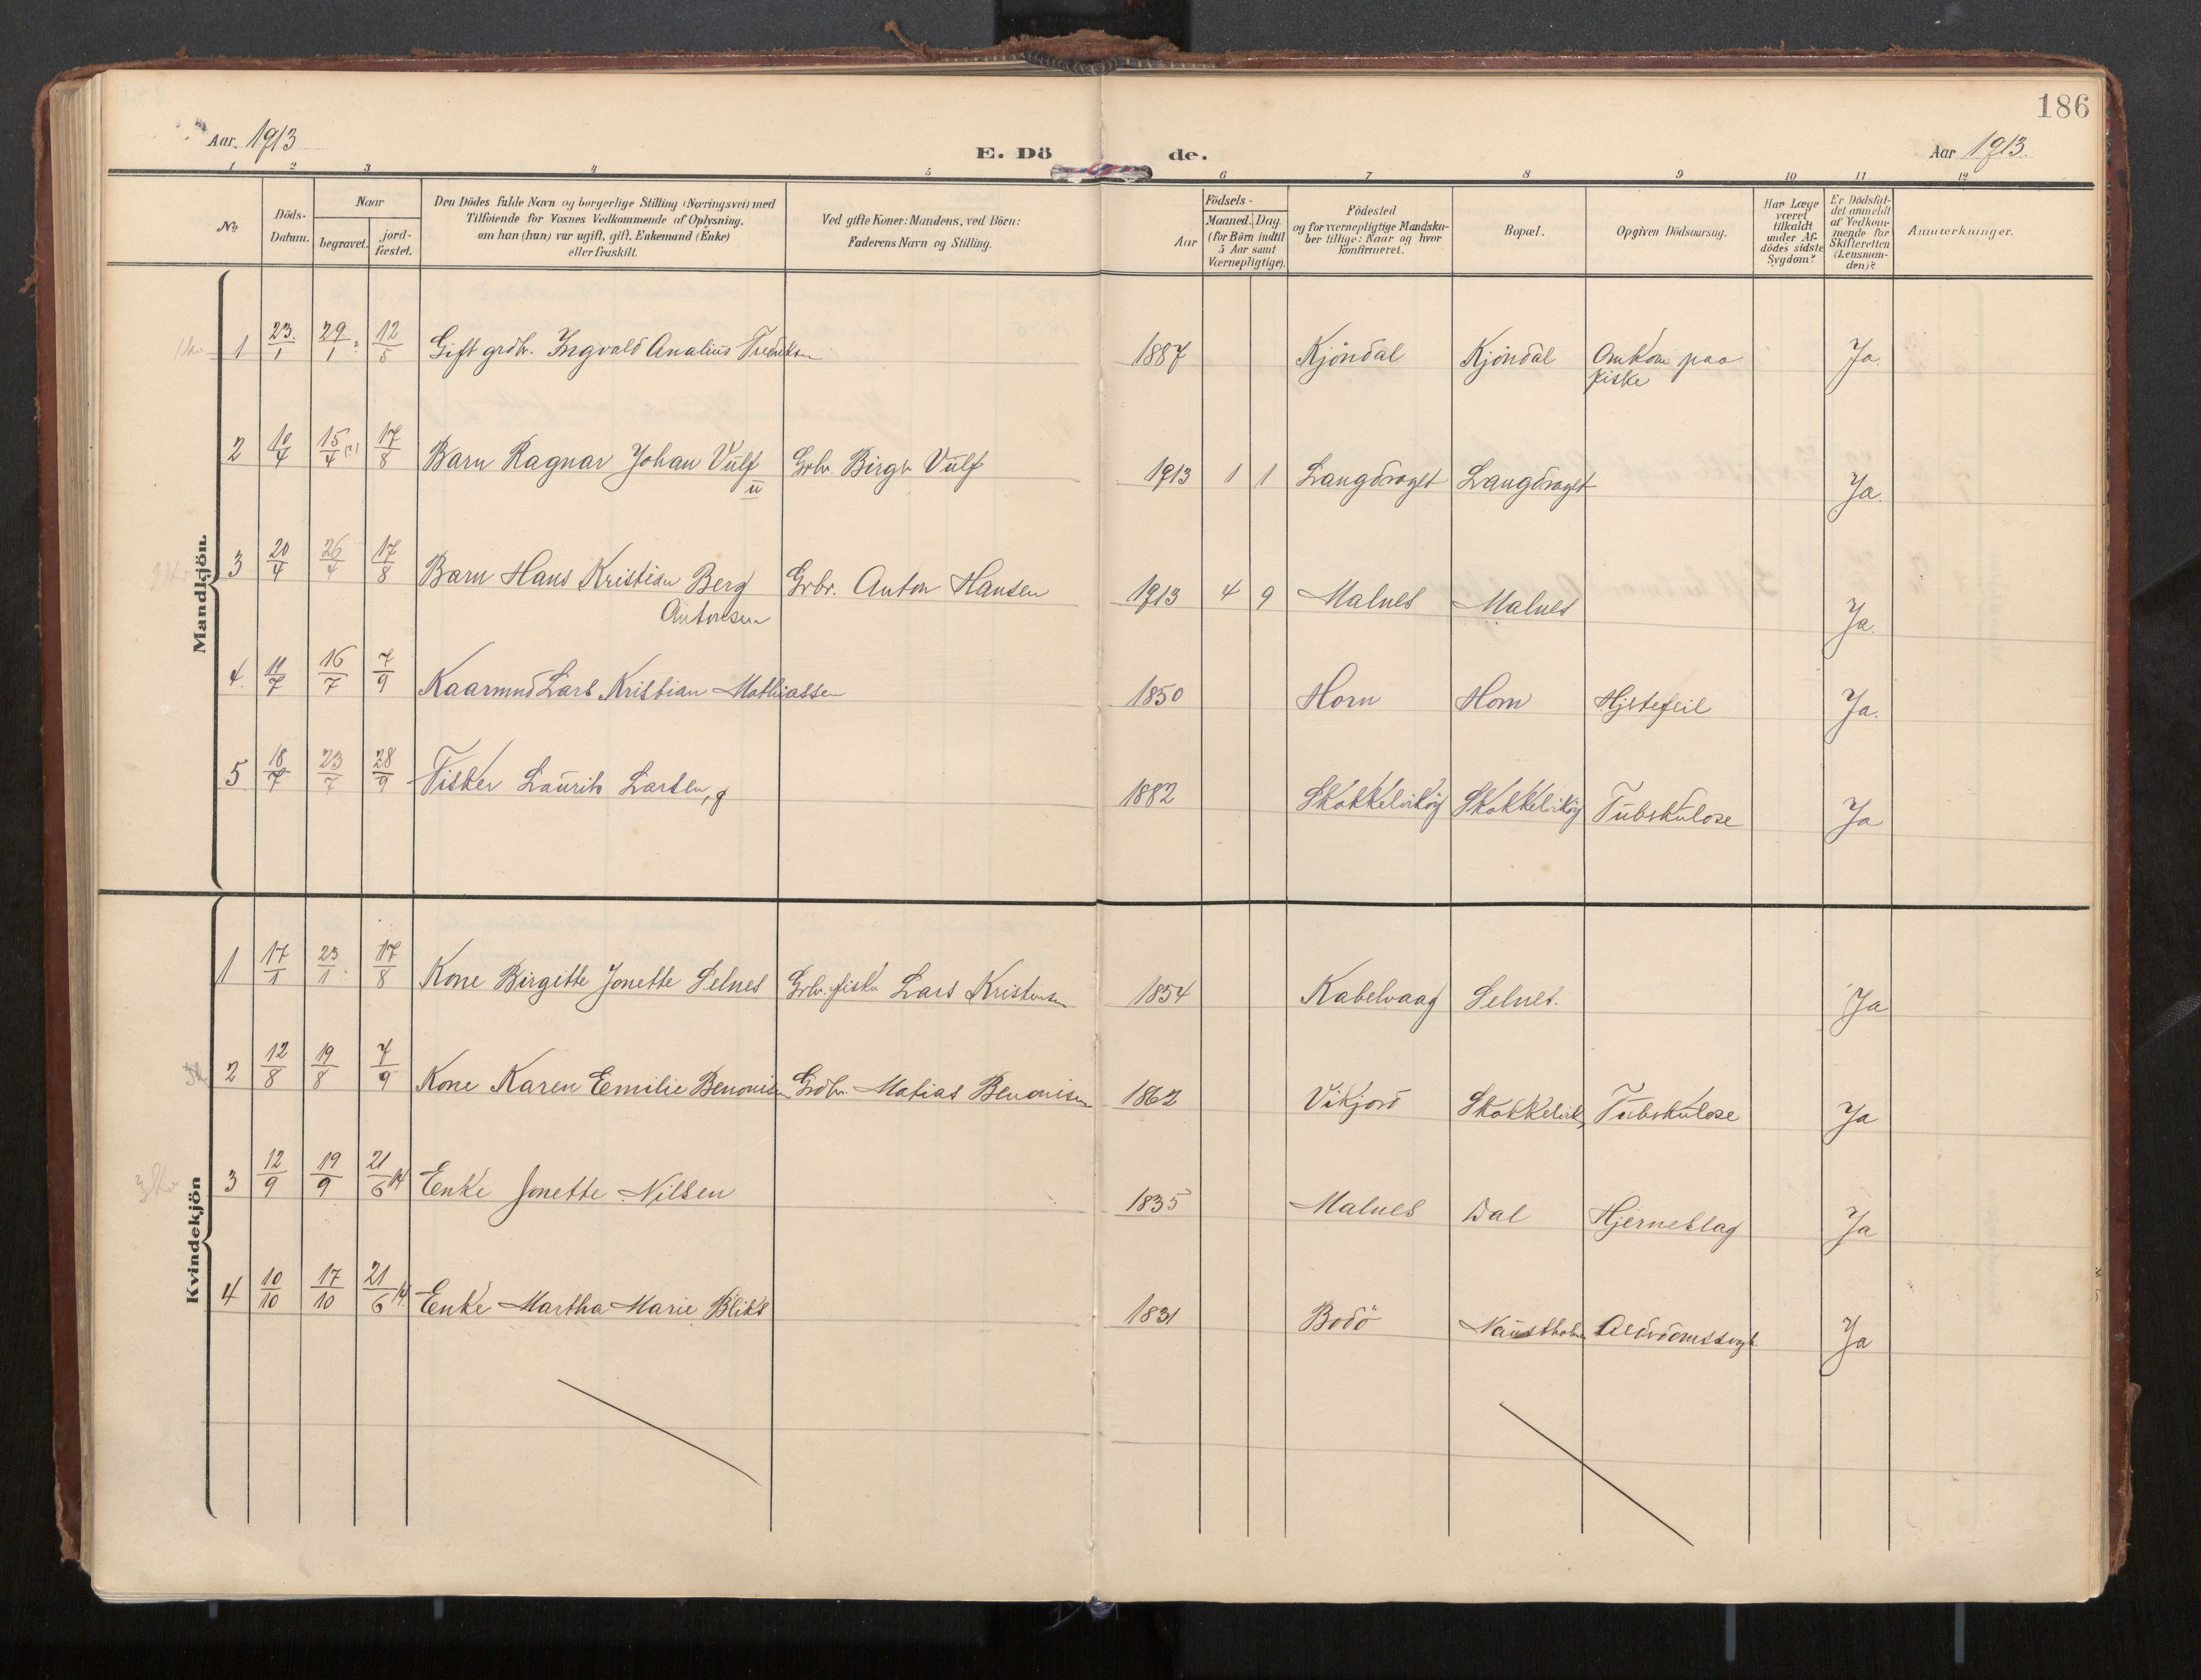 186
Aar. 1913
E. Dö de.
Aar 1913.
1 2 3 4 5 6 7 8 9 10 11 12
No
Döds-Datum.
Naar
begravet.
jord-fæstet.
Den Dödes fulde Navn og borgerlige Stilling (Næringsvei) med
Tilföiende for Voxnes Vedkommende af Oplysning,
om han (hun) var ugift, gift, Enkemand (Enke)
eller fraskilt.
Ved gifte Koner: Mandens, ved Börn:
Faderens Navn og Stilling.
Födsels-
Aar
Maaned. Dag.
(for Börn indtil
5 Aar samt
Værnepligtige).
Födested
og for værnepligtige Mandska-
ber tillige: Naar og hvor
konfirmeret.
Bopæl.
Opgiven Dödsaarsag.
Har Læge
været
tilkaldt
under Af-
dödes sidste
Sygdom?
Er Dödsfal-
det anmeldt
af Vedkom-
mende for
Skifteretten
(Lensman-
den)?
Anmærkninger.
Mandkjön.
1 23/1 29/1 12/5 Gift grdbr. Ingvald Analius Fredriksen 1887 Kjöndal Kjöndal Omkom paa Ja.
fiske
2 10/4 15/4 17/8 Barn Ragnar Johan Vulf Grbr. Birger Vulf 1913 1 1 Langdraget Langdraget Ja.
u
3 20/4 26/4 17/8 Barn Hans Kristian Berg Grbr. Anton Hansen 1913 4 9 Malnes Malnes Ja.
Antonsen
4. 11/7 16/7 7/9 Kaarmnd Lars Kristian Mathiassen 1850 Horn Horn Hjertefeil Ja.
5 18/7 23/7 28/9 Fisker Laurits Larsen, g 1882 Skokkelvikög Skokkelvikög Tubskulose Ja
Kvindekjön
1 17/1 23/1 17/8 Kone Birgitte Jonette Selnes Grbr. fisker Lars Kristensen 1854 Kabelvaag Selnes. Ja
2 12/8 19/8 7/9 Kone Karen Emilie Benonisen Grdbr. Matias Benonisen 1862 Vikjord Skokkelvik Tubskulose Ja
3 12/9 19/9 21/6 14 Enke Jonette Nilsen 1835 Malnes Dal Hjerneslag Ja
4 10/10 17/10 21/6 14. Enke Martha Marie Bliks 1831 Bodö Naustholmen Ja